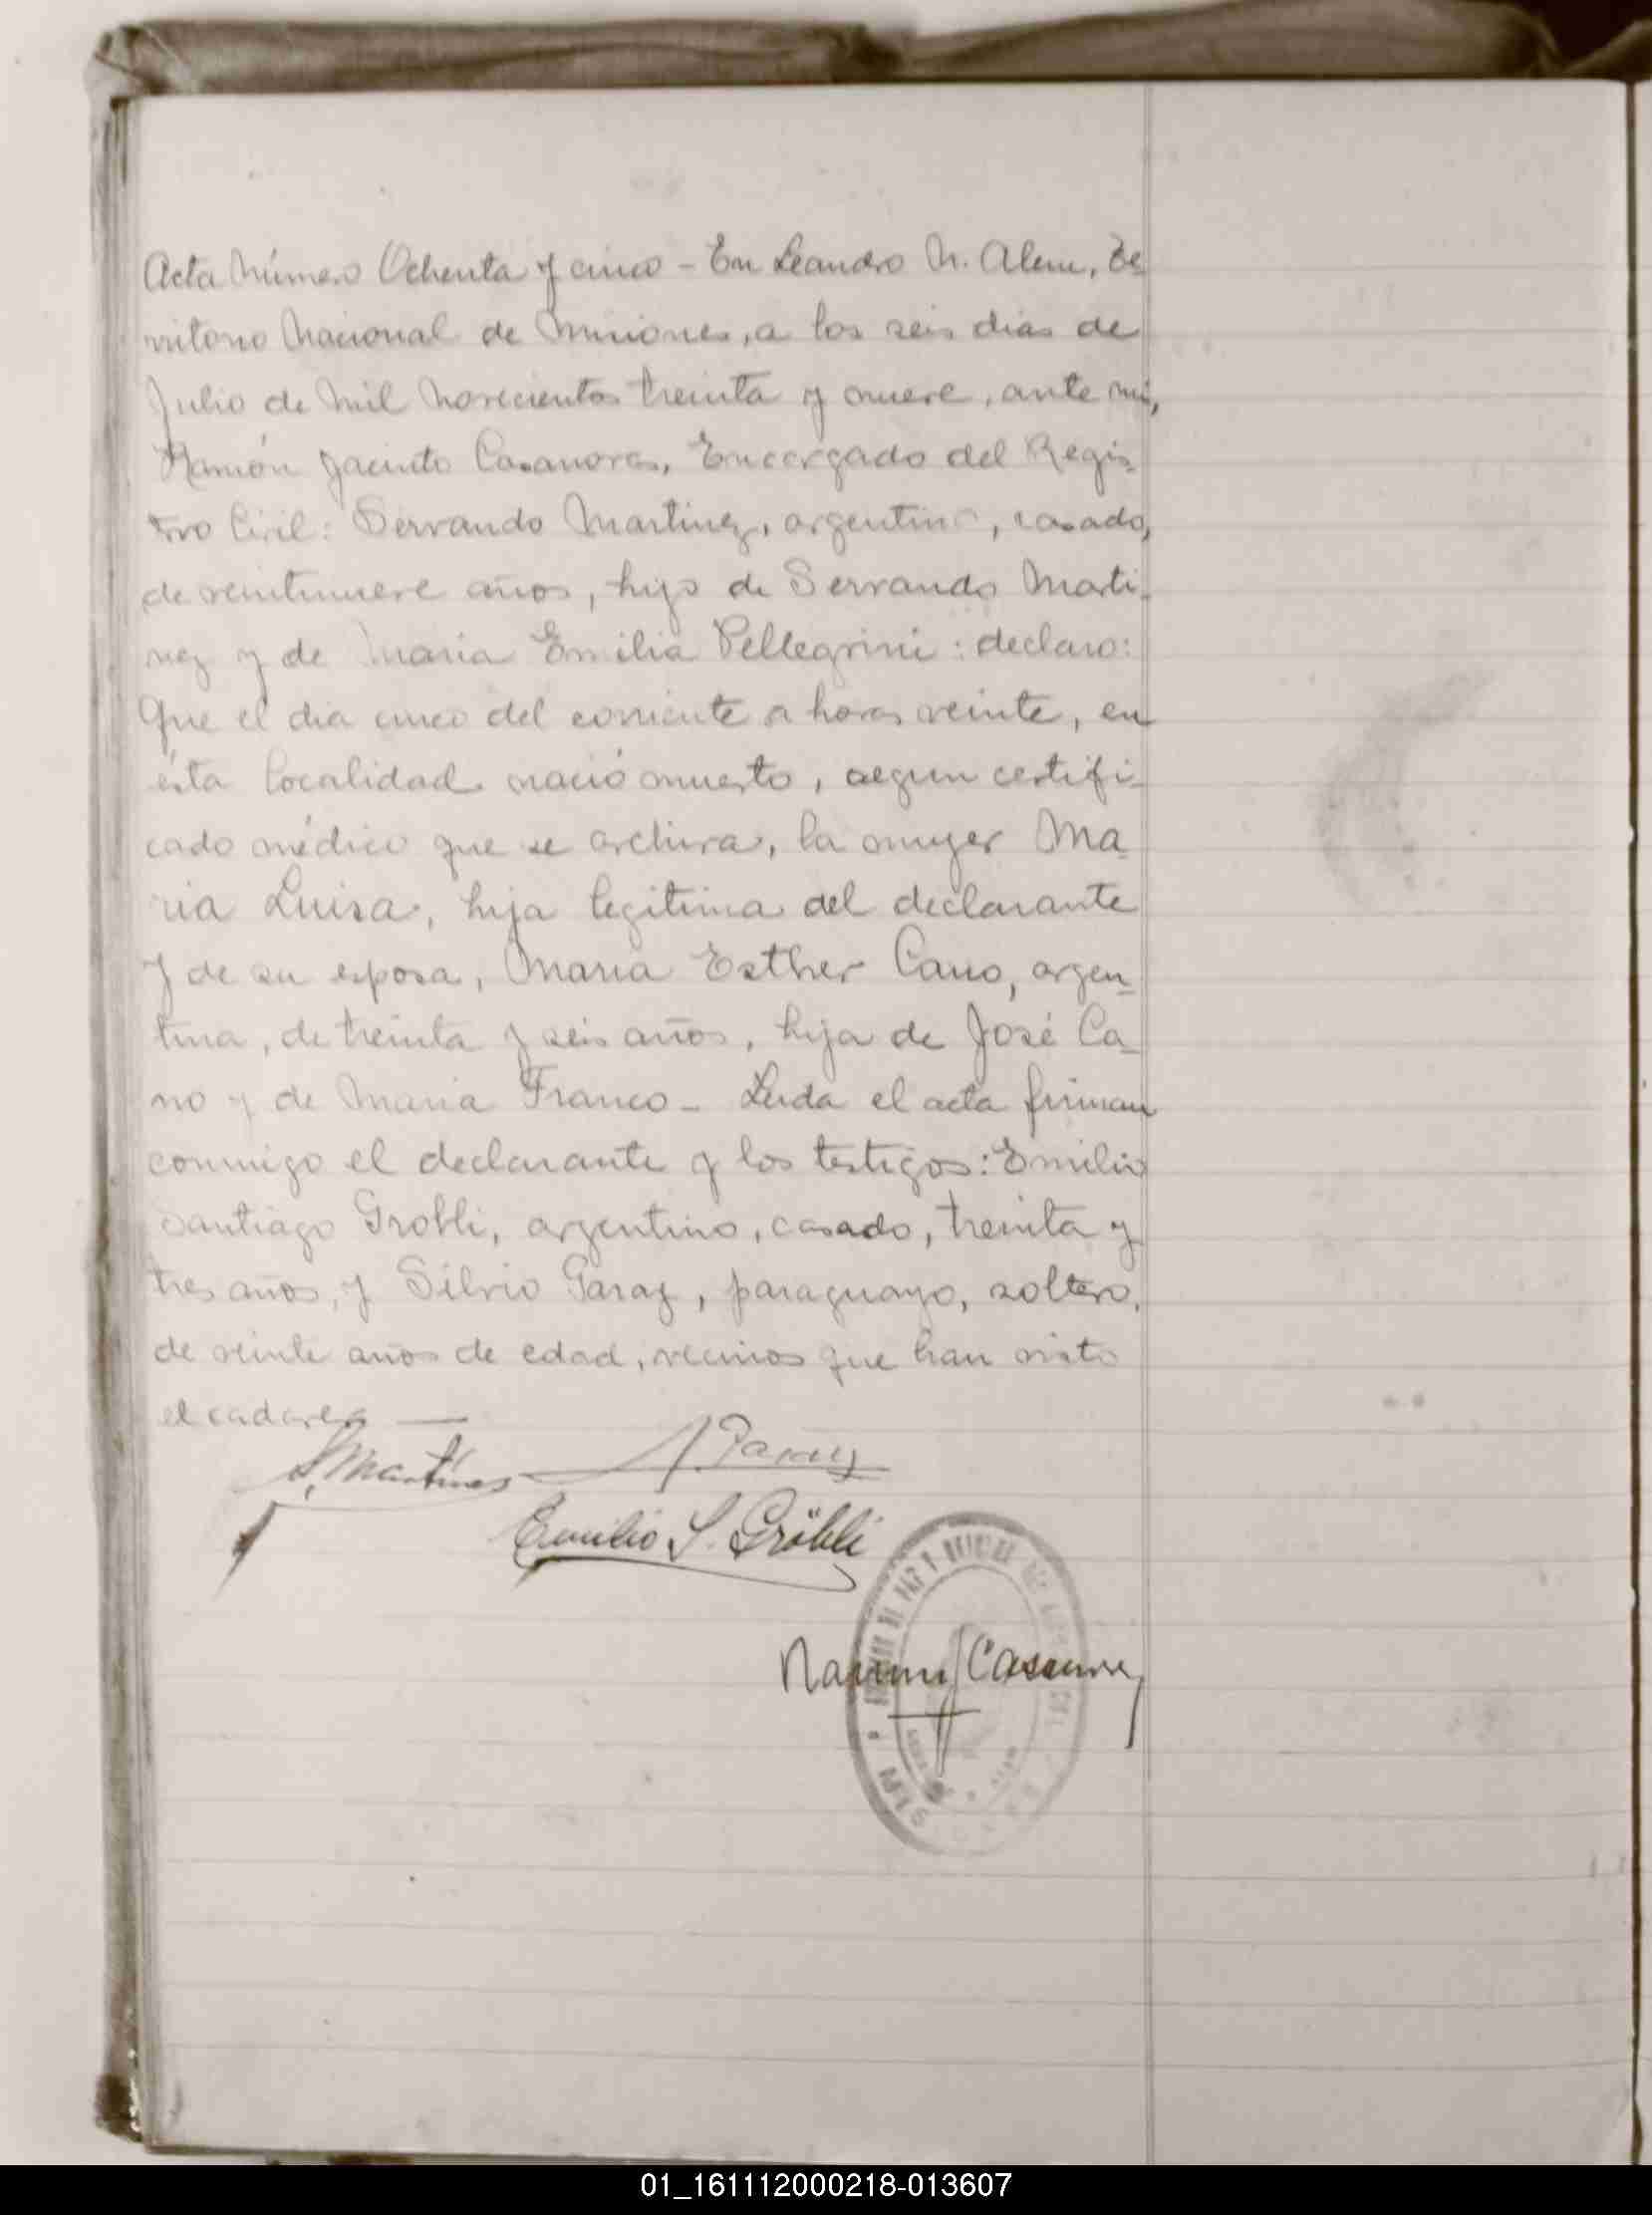 Acta Número Ochenta y cinco - En Leandro N. Alem, Te-
rritorio Nacional de Misiones, a los seis dias de
Julio de mil novecientos treinta y nueve, ante mi,
Ramón Jacinto Casanova, Encargado del Regis-
tro Civil: Servando Martinez, argentino, casado,
de veintinueve años, hijo de Servando Marti-
nez y de Maria Emilia Pellegrini: declaro:
Que el dia cinco del corriente a horas veinte, en
ésta localidad nació muerto, segun certifi-
cado médico que se archiva, la mujer Ma-
ria Luisa, hija legitima del declarante
y de su esposa, Maria Esther Cano, argen-
tina, de treinta y seis años, hija de José Ca-
no y de Maria Franco - Leida el acta firman
conmigo el declarante y los testigos: Emilio
Santiago Grobli, argentino, casado, treinta y
tres años, y Silvio Garay, paraguayo, soltero,
de veinte años de edad, vecinos que han visto
el cadaver —
S. Martinez
Garay
Emilio S. Gröbli
DE PAZ Y
Ramon J Casanova
MIS
01_161112000218-013607